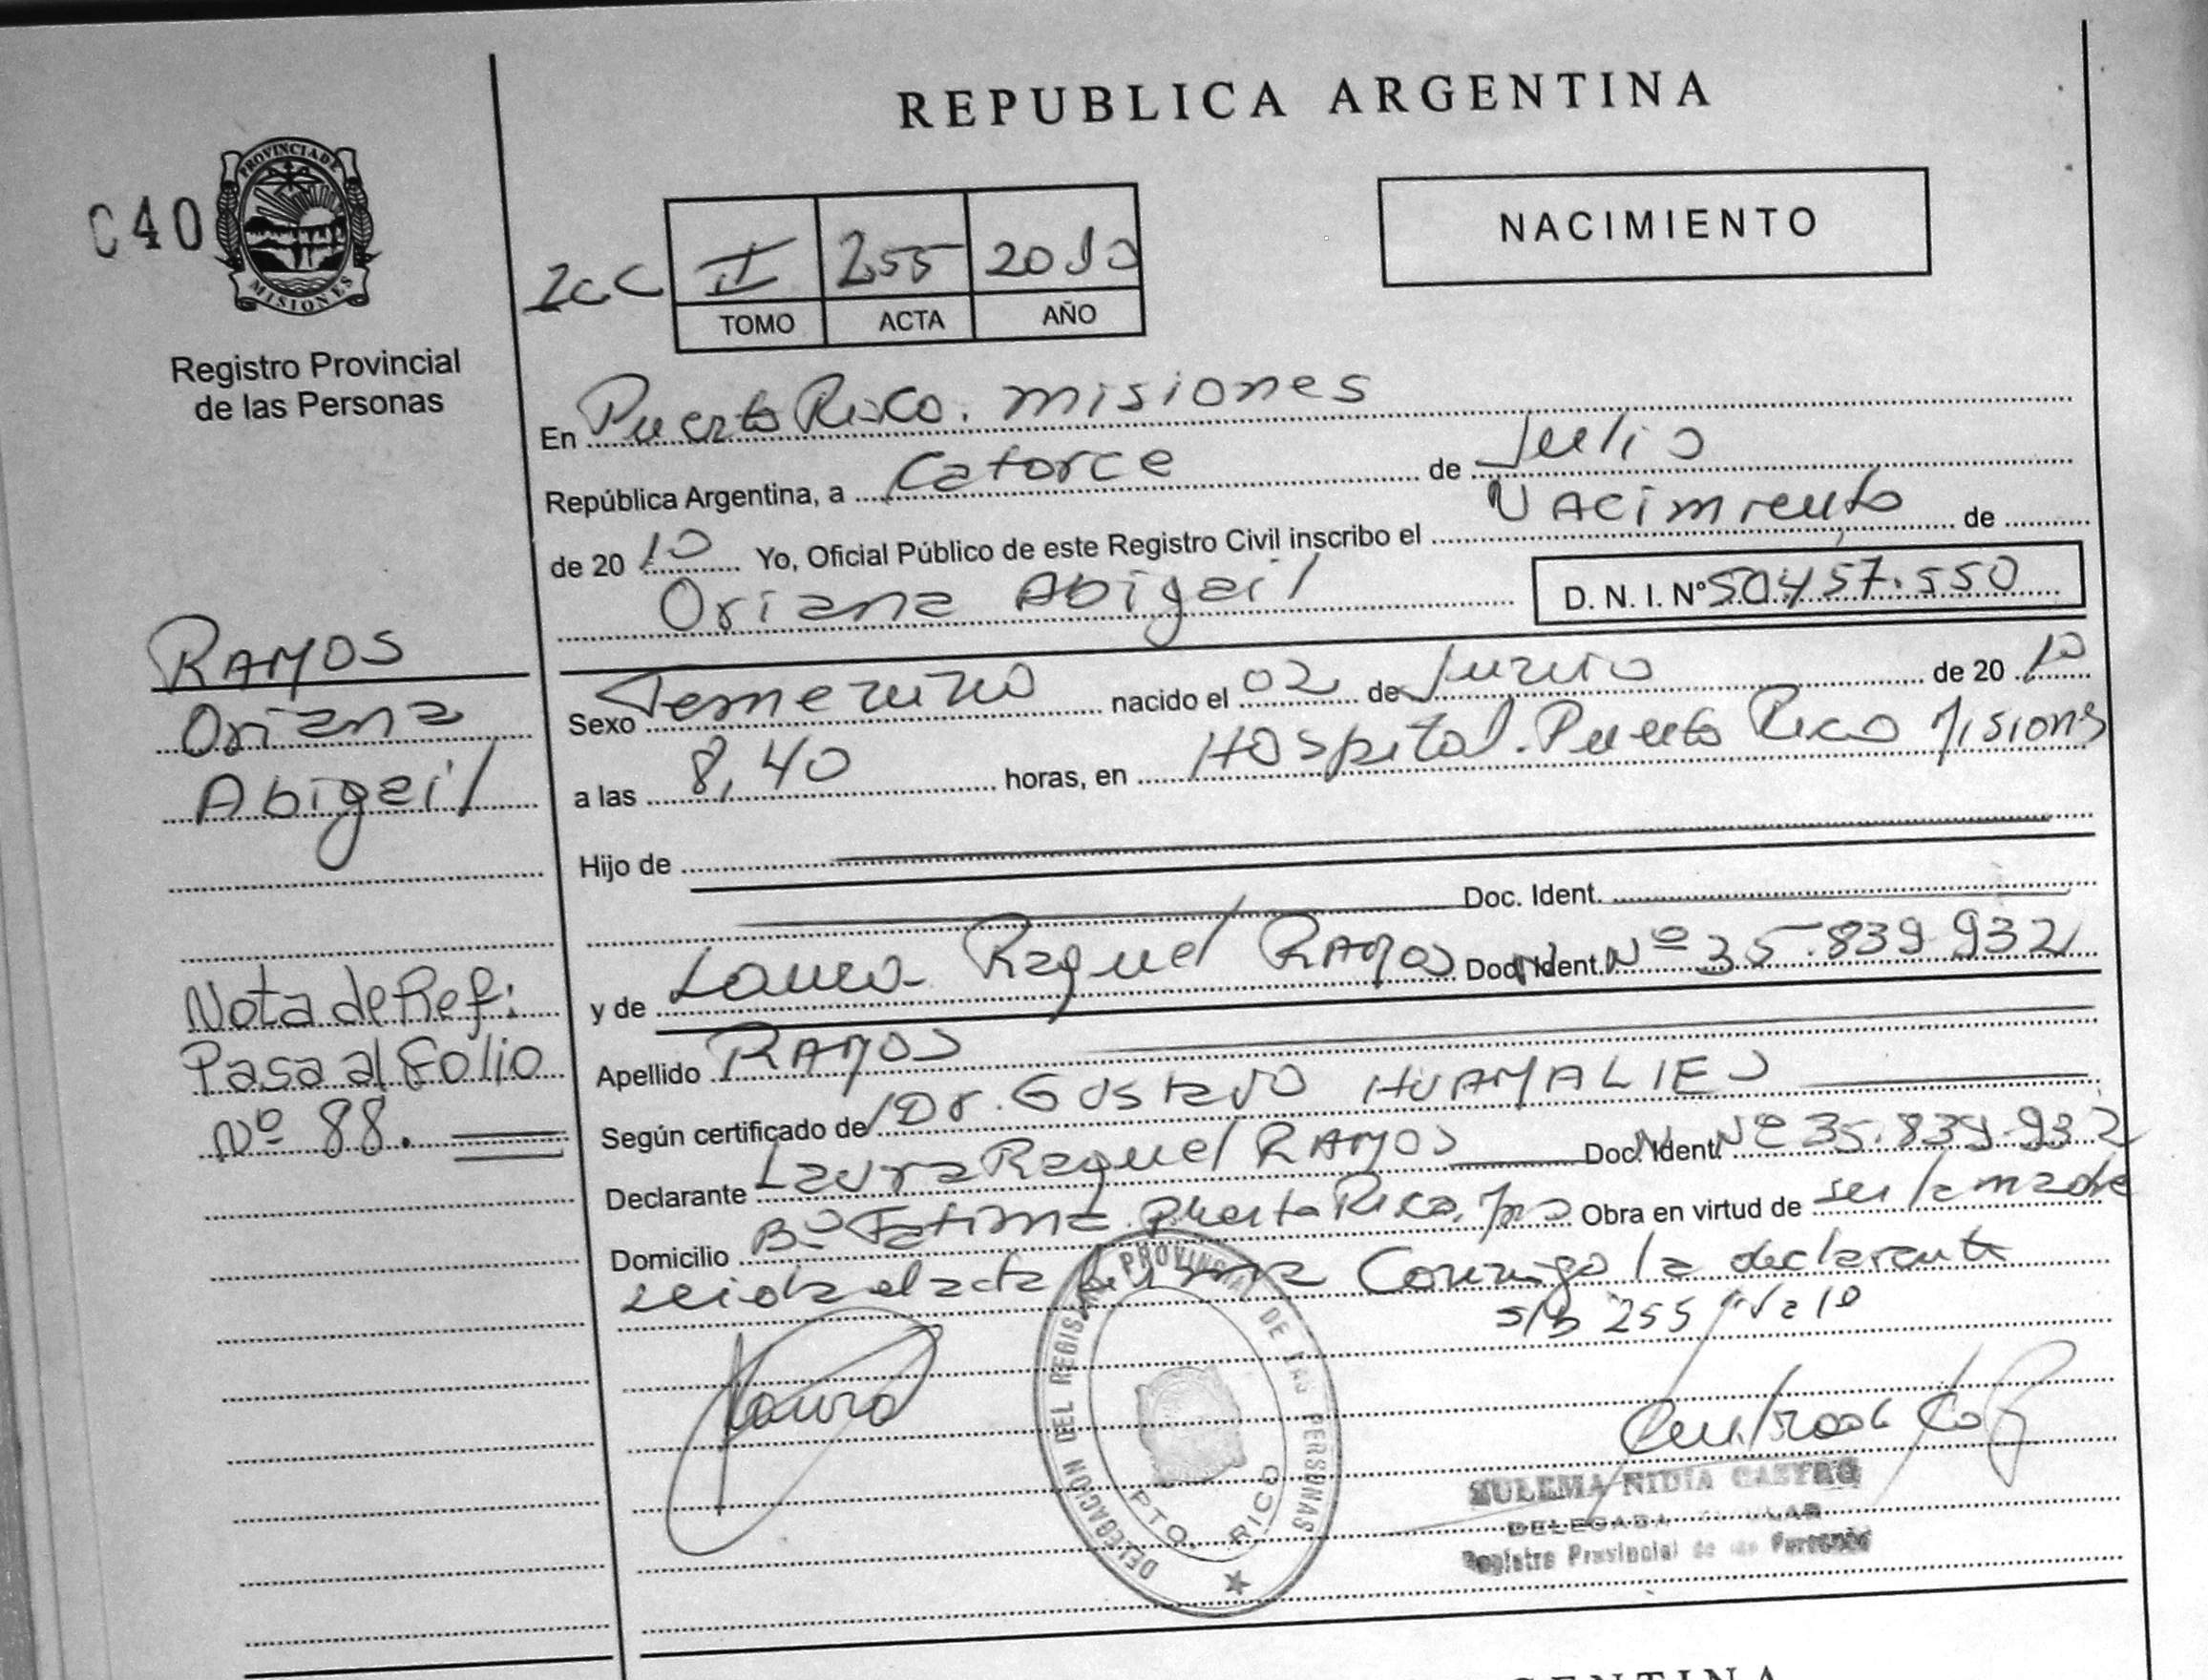 REPUBLICA ARGENTINA
NACIMIENTO
C40
PROVINCIA DE
MISIONES
Registro Provincial
de las Personas
II 255 2010
TOMO ACTA AÑO
En Puerto Rico. misiones
República Argentina, a Catorce de Julio
de 20 10 Yo, Oficial Público de este Registro Civil inscribo el Nacimiento de
Oriana Abigail D. N. I. Nº 50.457.550
RAMOS
Oriana
Abigail
Nota de Ref:
Pasa al Folio
Nº 88.
Sexo Femenino nacido el 02 de Junio de 20 10
a las 8,40 horas, en Hospital. Puerto Rico Misiones
Hijo de
Doc. Ident.
y de Laura Raquel RAMOS Doc. Ident. Nº 35.839.932
Apellido RAMOS
Según certificado de Dr. Gustavo HUAMALIES
Declarante Laura Raquel RAMOS Doc. Ident. Nº 35.839.932
Domicilio Bº Fatima Puerto Rico, Obra en virtud de ser la madre
Leida el acta firma Conmigo la declarante
s/b 255 Vale
Laura
DELEGACION DEL REGISTRO PROVINCIAL DE LAS PERSONAS
PTO. RICO
ZULEMA NIDIA CASTRO
DELEGADA TITULAR
Registro Provincial de las Personas